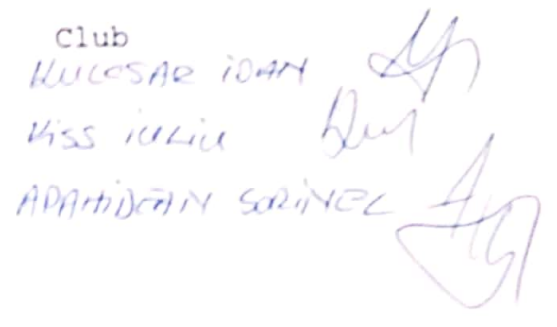 Club
KULCSAR IOAN
KISS IULIU
APAHIDEAN SORINEL